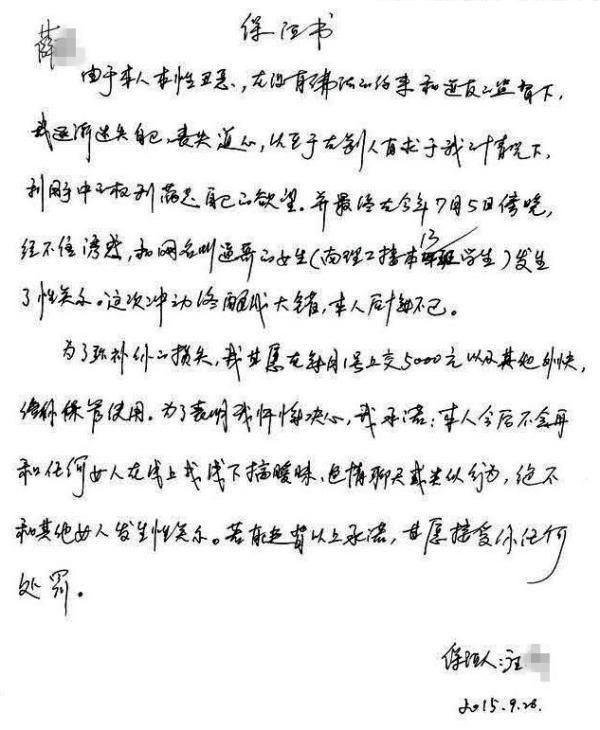 保证书
薛
由于本人本性丑恶,在没有佛法的约束和道友的监督下,
我逐渐迷失自己,丧失道心,以至于在别人有求于我之情况下,
利用手中的权利满足自己的欲望。并最终在今年7月5日傍晚,
经不住诱惑,和网名叫逍哥的女生(南理工接本13班学生)发生
了性关系。这次冲动终酿成大错,本人后悔不已。
为了弥补你的损失,我甘愿在每月1号上交5000元以及其他外快,
给你保管使用。为了表明我忏悔决心,我承诺:本人今后不会再
和任何女人在线上或线下搞暧昧、色情聊天或类似行为,绝不
和其他女人发生性关系。若有违背以上承诺,甘愿接受你任何
处罚。
保证人:汪
2015.9.28.